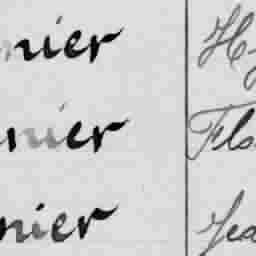 nier H
nier Fls
nier Jea